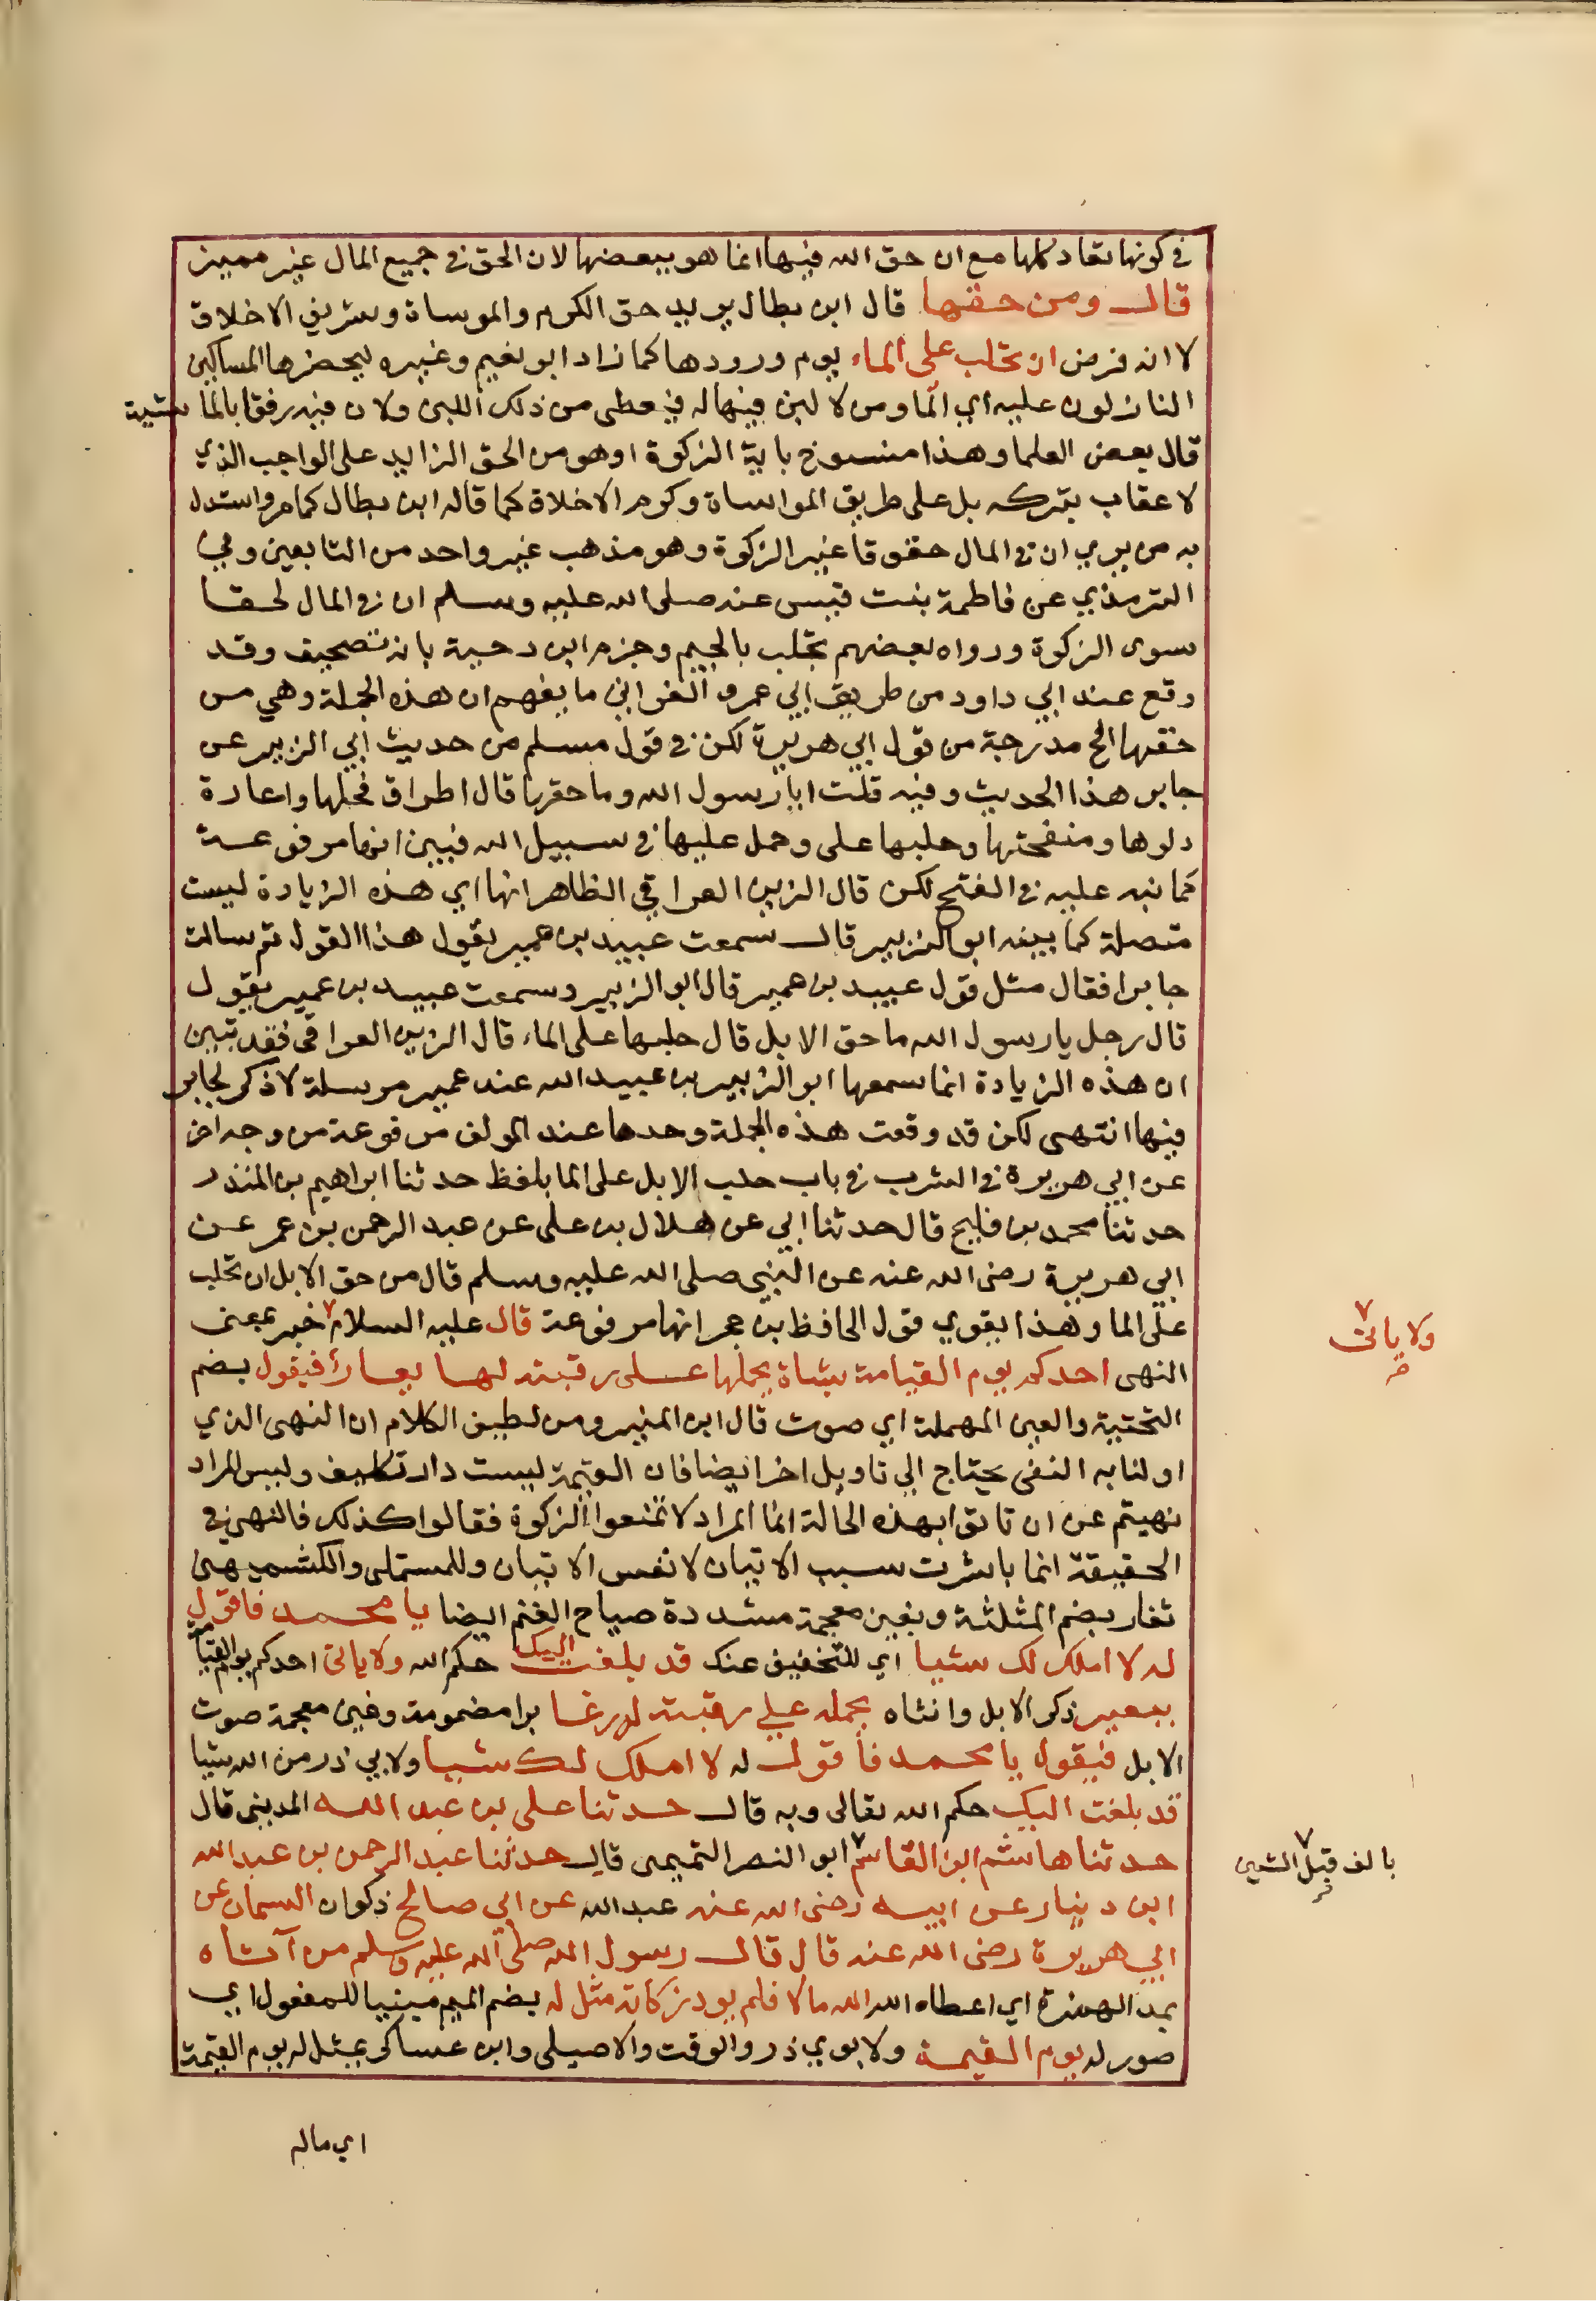 في كونها تعاد كلها مع ان حق الله فيها انما هو ببعضها لان الحق في جميع المال غير مميز
قال ومن حقها قال ابن بطال يريد حق الكرم والموساة وشريف الاخلاق
لا انه فرض ان تحلب على الماء يوم ورودها كما زاد ابو نعيم وغيره ليحضرها المساكين
النازلون عليه اي الما ومن لا لبن فيها له فيعطى من ذلك اللبن ولان فيه رفقا بالماشية
قال بعض العلما وهذا منسوخ باية الزكوة او هو من الحق الزايد على الواجب الذي
لا عقاب بتركه بل على طريق المواساة وكرم الاخلاق كما قاله ابن بطال كما مر واستدل
به من يري ان في المال حقوقا غير الزكوة وهو مذهب غير واحد من التابعين وفي
الترمذي عن فاطمة بنت قيس عنه صلى الله عليه وسلم ان في المال لحقا
سوى الزكوة ورواه بعضهم تجلب بالجيم وجزم ابن دحية بانه تصحيف وقد
وقع عند ابي داود من طريق ابي عمرو الغواني ما يفهم ان هذه الجملة وهي من
حقها الخ مدرجة من قول ابي هريرة لكن في قول مسلم من حديث ابي الزبير عن
جابر هذا الحديث وفيه قلت ايا رسول الله وما حقها قال اطراق فحلها واعارة
دلوها ومنفحتها وحلبها على وحمل عليها في سبيل الله فبين انها مرفوعة
كما نبه عليه في الفتح لكن قال الزين العراقي الظاهر انها اي هذه الزيادة ليست
متصلة كما بينه ابو الزبير قال سمعت عبيد بن عمير يقول هذا القول ثم سالت
جابرا فقال مثل قول عبيد بن عمير قال ابو الزبير وسمعت عبيد بن عمير يقول
قال رجل يا رسول الله ما حق الابل قال حلبها على الماء قال الزين العراقي فقد تبين
ان هذه الزيادة انما سمعها ابو الزبير بن عبيد الله عند عمير مرسلة لا ذكر لجابر
فيها انتهى لكن قد وقعت هذه الجملة وحدها عند المولف مرفوعة من وجه اخر
عن ابي هريرة في الشرب في باب حلب الابل على الما بلفظ حدثنا ابراهيم بن المنذر
حدثنا محمد بن فليح قال حدثنا ابي عن هلال بن على عن عبد الرحمن بن عمر عن
ابي هريرة رضى الله عنه عن النبي صلى الله عليه وسلم قال من حق الابل ان تحلب
على الما وهذا يقوي قول الحافظ بن حجر انها مرفوعة قال عليه السلام ٧ خبر بمعنى
ولا ياتى
النهى احدكم يوم القيامة بشاة يحملها على رقبته لها يعار فيقول بضم
التحتية والعين المهملة اي صوت قال ابن المنير ومن لطيف الكلام ان النهى الذي
اولنا به النفى يحتاج الي تاويل اخر ايضا فان القيمة ليست دار تكليف وليس المراد
نهيتم عن ان تاتوا بهذه الحالة انما المراد لا تمنعوا الزكوة فقالوا كذلك فالنهي في
الحقيقة انما باشرت سبب الاتيان لا نفس الاتيان وللمستملى والكشميهنى
ثغار بضم المثلثة وبغين معجمة مشددة صياح الغنم ايضا يا محمد فاقول
له لا املك لك شيا اي للتخفيف عنك قد بلغت اليك حكم الله ولا ياتى احدكم يوم القيامة
ببعير ذكر الابل وانثاه يحمله علي رقبته له رغا برا مضمومة وغين معجمة صوت
الابل فيقول يا محمد فاقول له لا املك لك شيا ولابي ذر من الله شيا
قد بلغت اليك حكم الله تعالى وبه قال حدثنا على بن عبد الله المدينى قال
حدثنا هاشم ابن القاسم ٧ ابو النصر التميمى قال حدثنا عبد الرحمن بن عبد الله
بالف قبل الشين
ابن دينار عن ابيه رضى الله عنه عبد الله عن ابي صالح ذكوان السمان عن
ابي هريرة رضى الله عنه قال قال رسول الله صلى الله عليه وسلم من آتاه
بمد الهمزة اي اعطاه الله الله مالا فلم يود زكاته مثل له بضم الميم مبنيا للمفعول اي
صور له يوم القيمة ولابوي ذر والوقت والاصيلى وابن عساكر بمثل له يوم القيمة
اي ماله